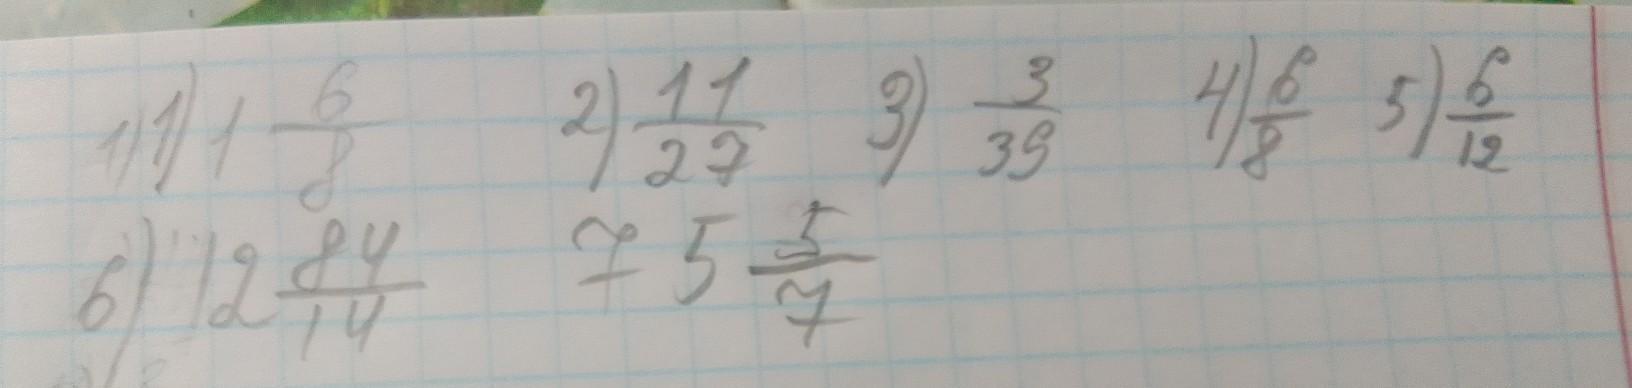 1) 1) 1 6/8 2) 11/27 3) 3/39 4) 6/8 5) 6/12
6) 12 84/14 7 5 5/7